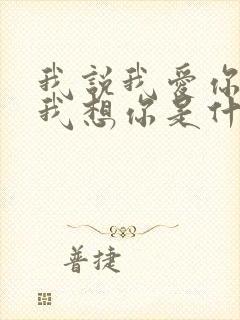 我説我愛你
我想你是什
普捷